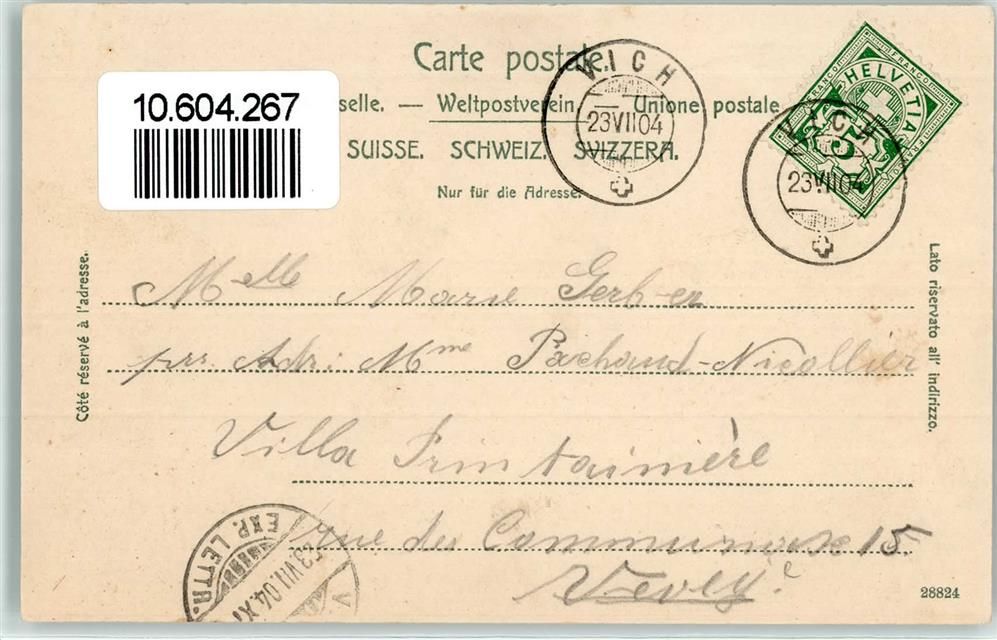 Carte postale.
10.604.267
selle. — Weltpostverein. — Unione postale
SUISSE. SCHWEIZ. SVIZZERA.
Nur für die Adresse.
VICH
23 VII 04
VICH
23 VII 04
FRANCO FRANCO
HELVETIA
5
Côté réservé à l'adresse.
Lato riservato all' indirizzo.
Melle Marie Gerber
pr. Adr: Mme Pachoud-Nicollier
Villa Printanière
rue des Communaux 15
Vevey
EXP. LETTR.
23 VII 04. XI
V
28824